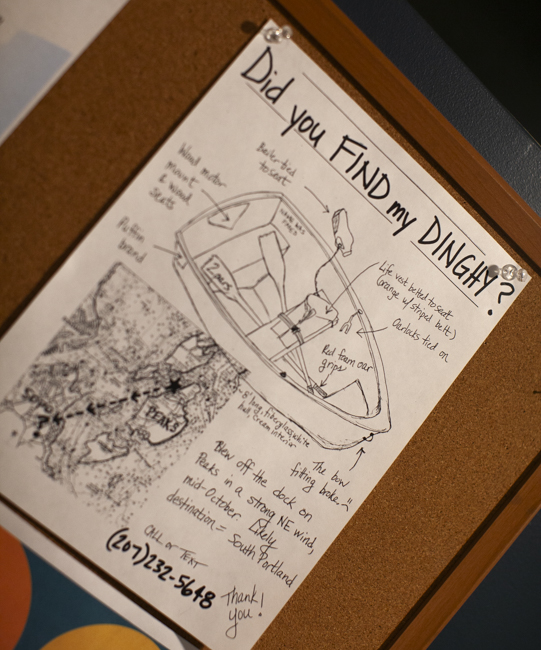 Did you FIND my DINGHY?
Bailer tied
to seat
Wood motor
mount
& wood
seats
Puffin
brand
2 oars
Life vest belted to seat
(orange w/ striped belt)
Oarlocks tied on
Red foam oar
grips
long, fiberglass, white
hull, cream interior
The bow
fitting broke
Blew off the dock on
Peaks in a strong NE wind,
mid-October. Likely
destination = South Portland
SOPO
?
PEAKS
CALL or TEXT
(207)232-5648
Thank
you!